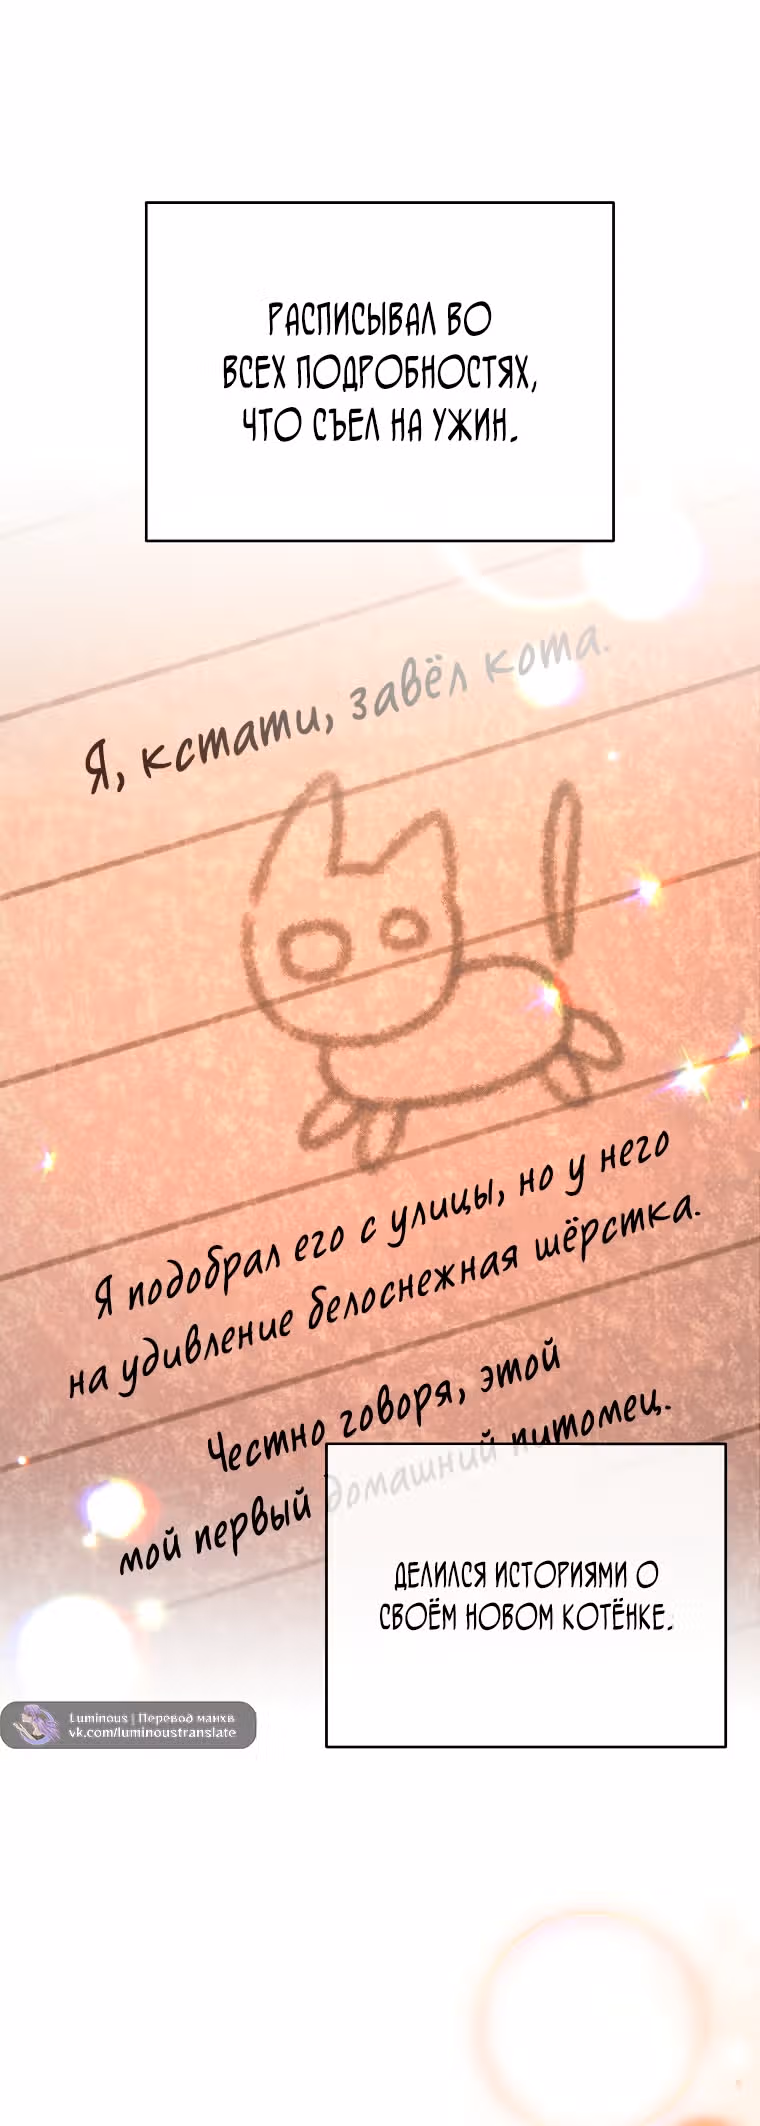 РАСПИСЫВАЛ ВО
ВСЕХ ПОДРОБНОСТЯХ,
ЧТО СЪЕЛ НА УЖИН.
Я, кстати, завёл кота.
Я подобрал его с улицы, но у него
на удивление белоснежная шёрстка.
Честно говоря, этой
мой первый домашний питомец.
ДЕЛИЛСЯ ИСТОРИЯМИ О
СВОЁМ НОВОМ КОТЁНКЕ.
Luminous | Перевод манхв
vk.com/luminoustranslate